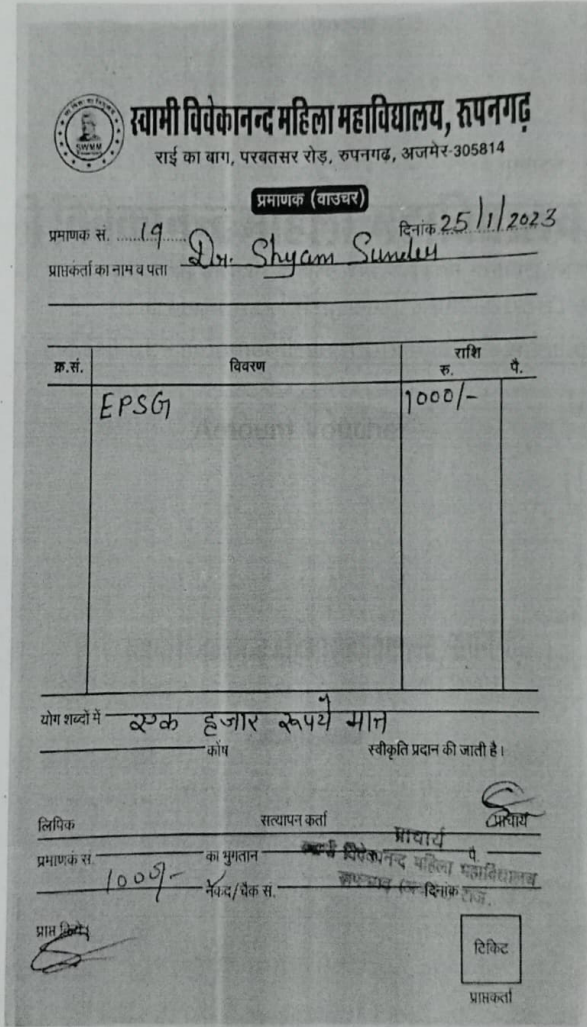 SWMM
स्वामी विवेकानन्द महिला महाविद्यालय, रूपनगढ़
राई का बाग, परबतसर रोड़, रुपनगढ, अजमेर-305814
प्रमाणक (वाउचर)
प्रमाणक सं. 19 दिनांक 25/1/2023
प्राप्तकर्ता का नाम व पता Dr. Shyam Sunder
क्र.सं. विवरण राशि
रु. पै.
EPSG 1000/-
योग शब्दों में एक हजार रूपये मात्र
कोष स्वीकृति प्रदान की जाती है।
लिपिक सत्यापन कर्ता प्राचार्य
प्राचार्य
प्रमाणकं सं. का भुगतान पै.
विवेकानन्द महिला महाविद्यालय
1000/- नकद/चैक सं. दिनांक राज.
प्राप्त किये।
टिकिट
प्राप्तकर्ता